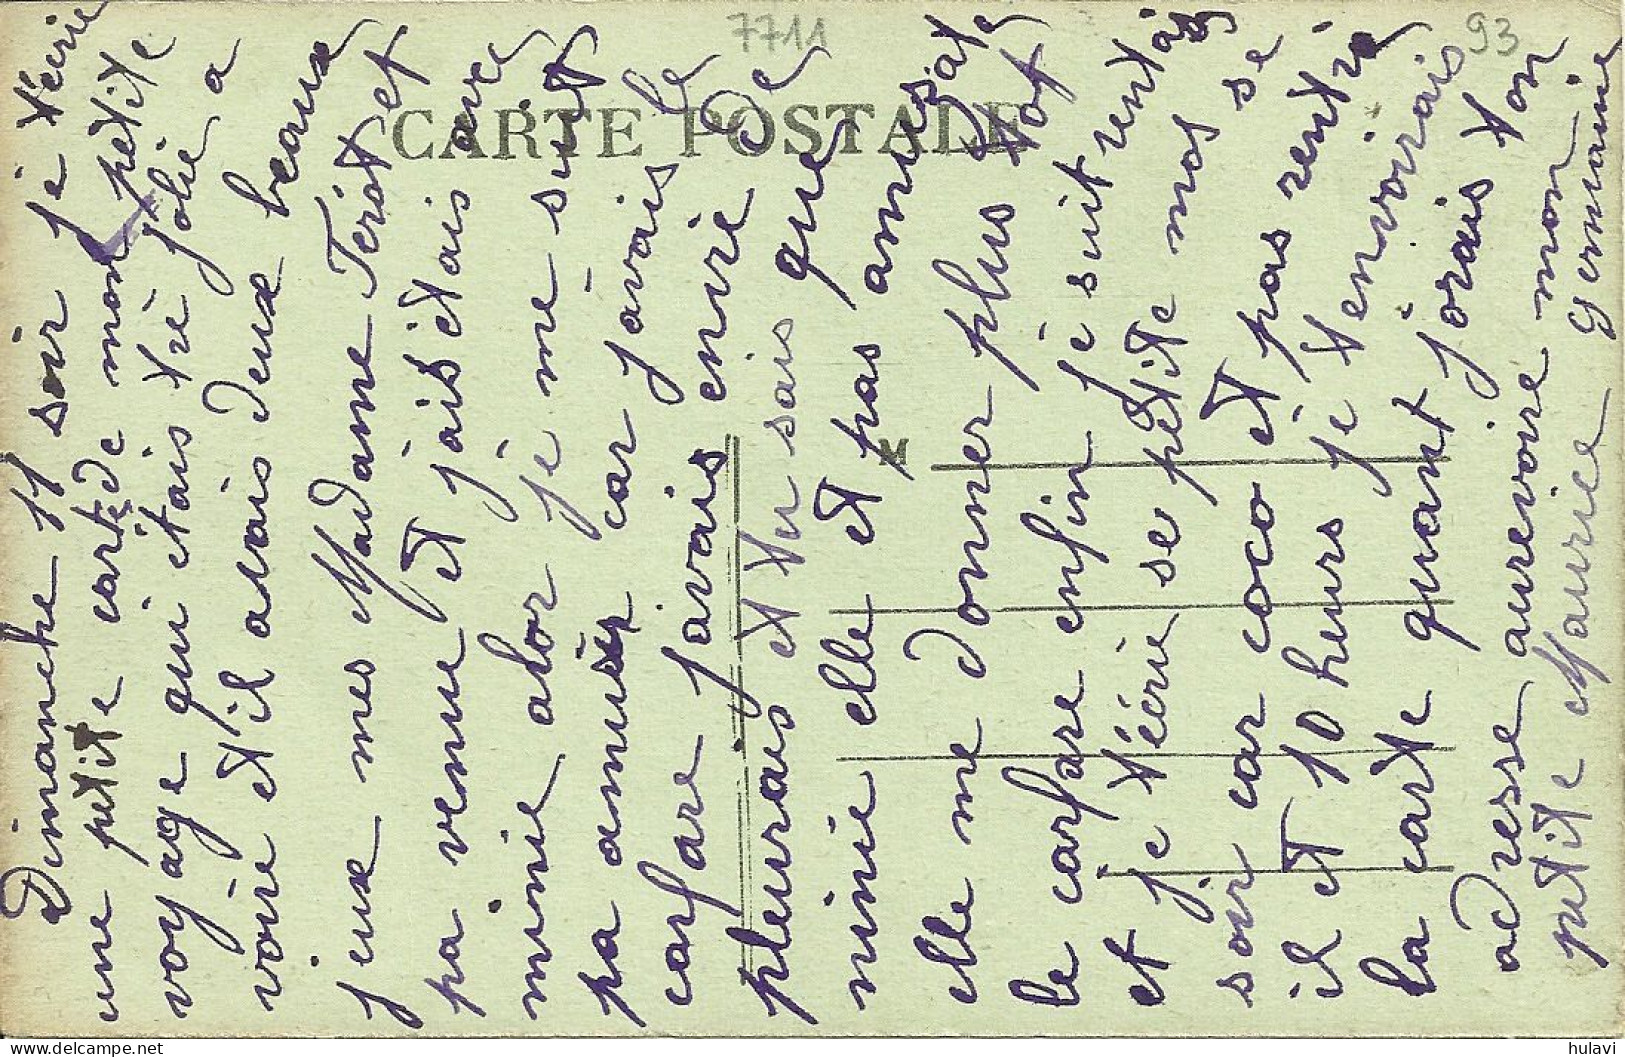 7711
93
CARTE POSTALE
Dimanche 11 soir je t'écrie
une petite carte de mon petite
voyage qui étais trè jolie a
voire et il avais deux beaux
jeux mes Madame Terot et
pa venue et jais était avec
minie alor je me suit
pa amusér car javais le
carfare javais envie de
pleurais et tu sais que
minie elle et pas amusate
elle me donner plus tot
le carfare enfin je suit rentrais
et je t'écrie se petite mos se
soir car coco et pas rentré
il et 10 heurs je t'envoirais
la carte quant jorais ton
adresse aurevoire mon
petite Maurice Germaine
M
hulavi